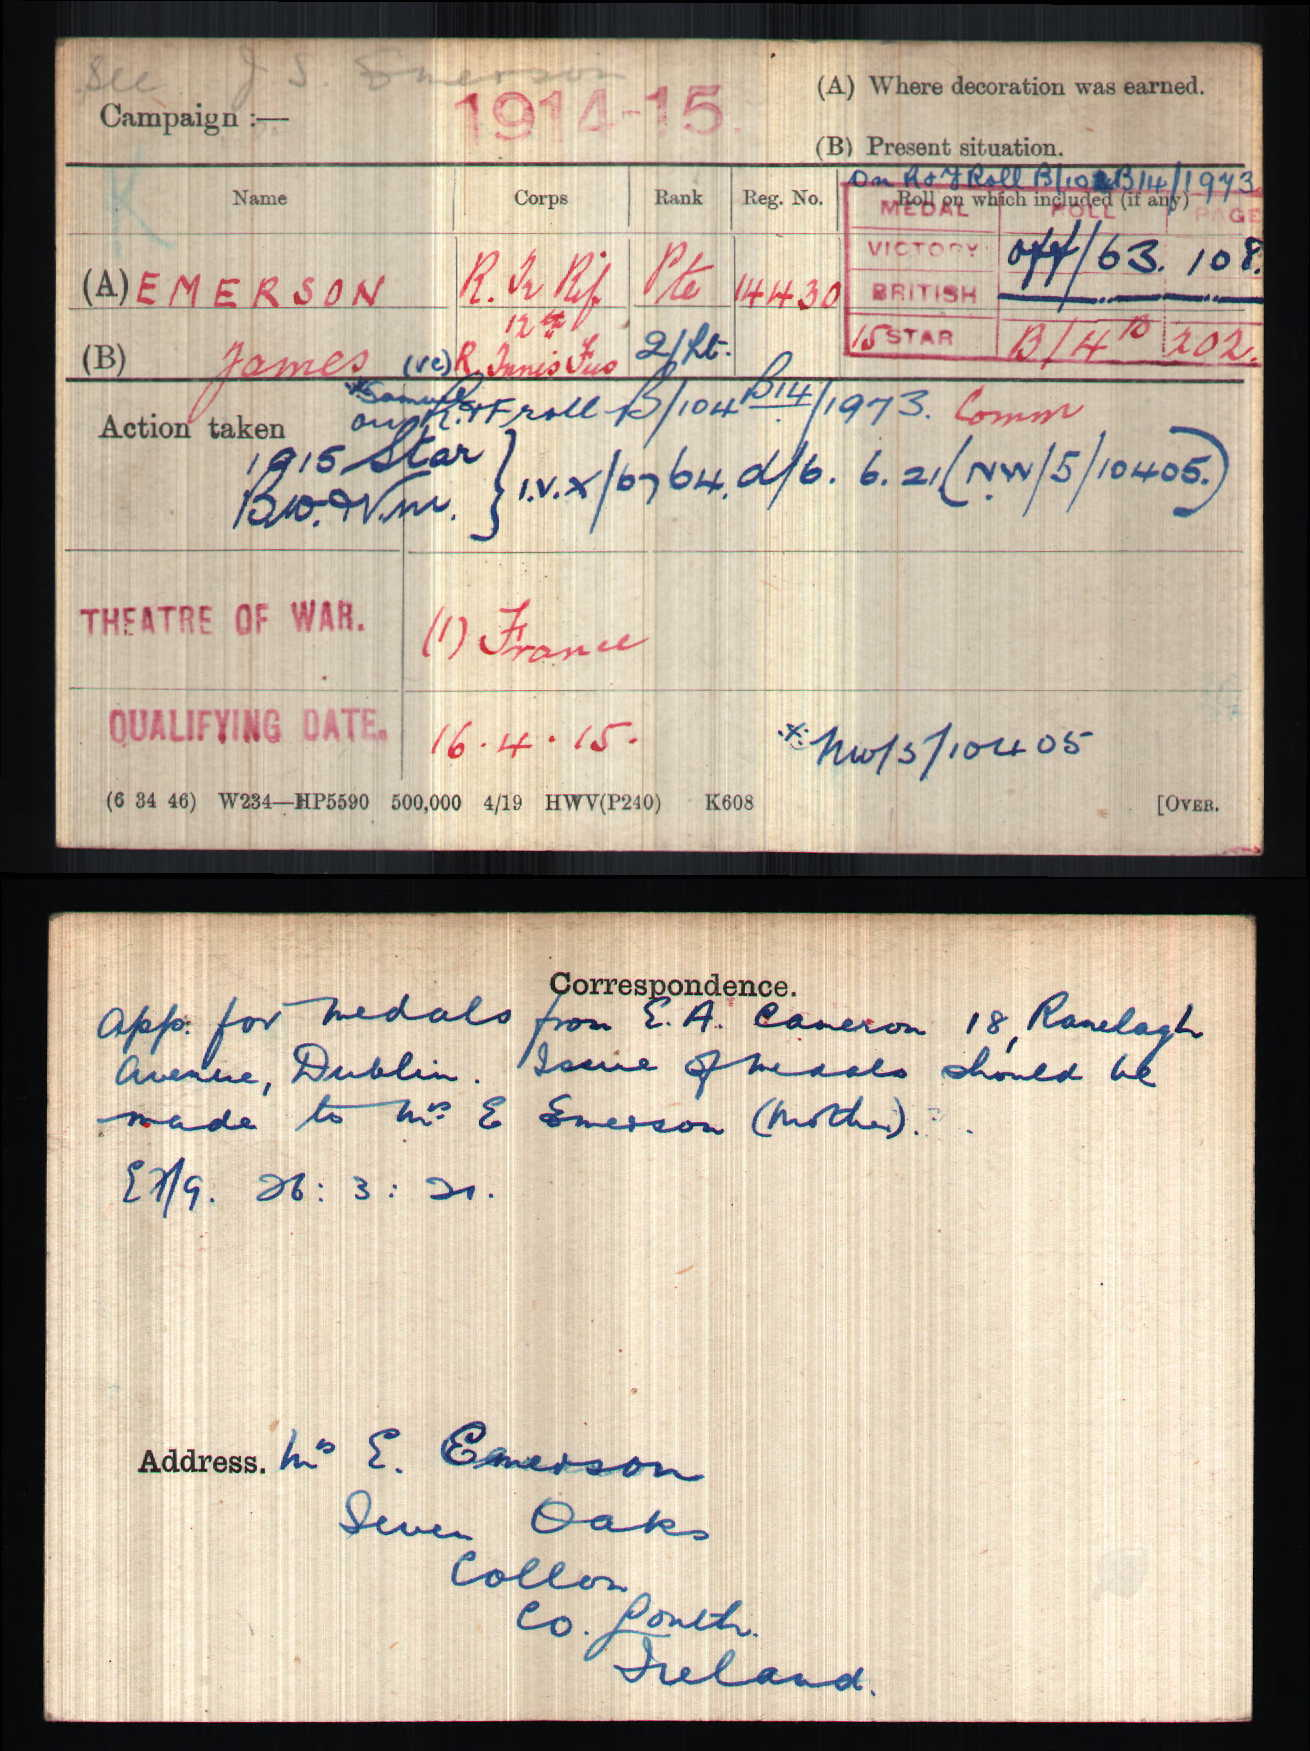 See J S. Emerson
Campaign :—
1914-15.
(A) Where decoration was earned.
(B) Present situation.
K
On R & F Roll B/104 B14/1973
Name Corps Rank Reg. No. Roll on which included (if any)
MEDAL ROLL PAGE
(A) EMERSON R. Ir Rif. Pte 14430
VICTORY off/63. 108.
BRITISH
12th
(B) James (VC) R. Innis Fus 2/Lt.
15 STAR B/4 B 202.
*Samuel
on R. & F roll B/104 B14/1973. Comm
Action taken
1915 Star
B.W. & V.M. } I.V.X/6764. d/6. 6. 21 (NW/5/10405.)
THEATRE OF WAR. (1) France
QUALIFYING DATE. 16.4.15.
* NW/5/10405
(6 34 46) W234—HP5590 500,000 4/19 HWV(P240) K608 [OVER.
Correspondence.
App: for medals from E. A. Cameron 18, Ranelagh
Avenue, Dublin. Issue of medals should be
made to Mrs E Emerson (Mother).
26: 3: 21.
Address. Mrs E. Emerson
Seven Oaks
Collon
Co. Louth.
Ireland.